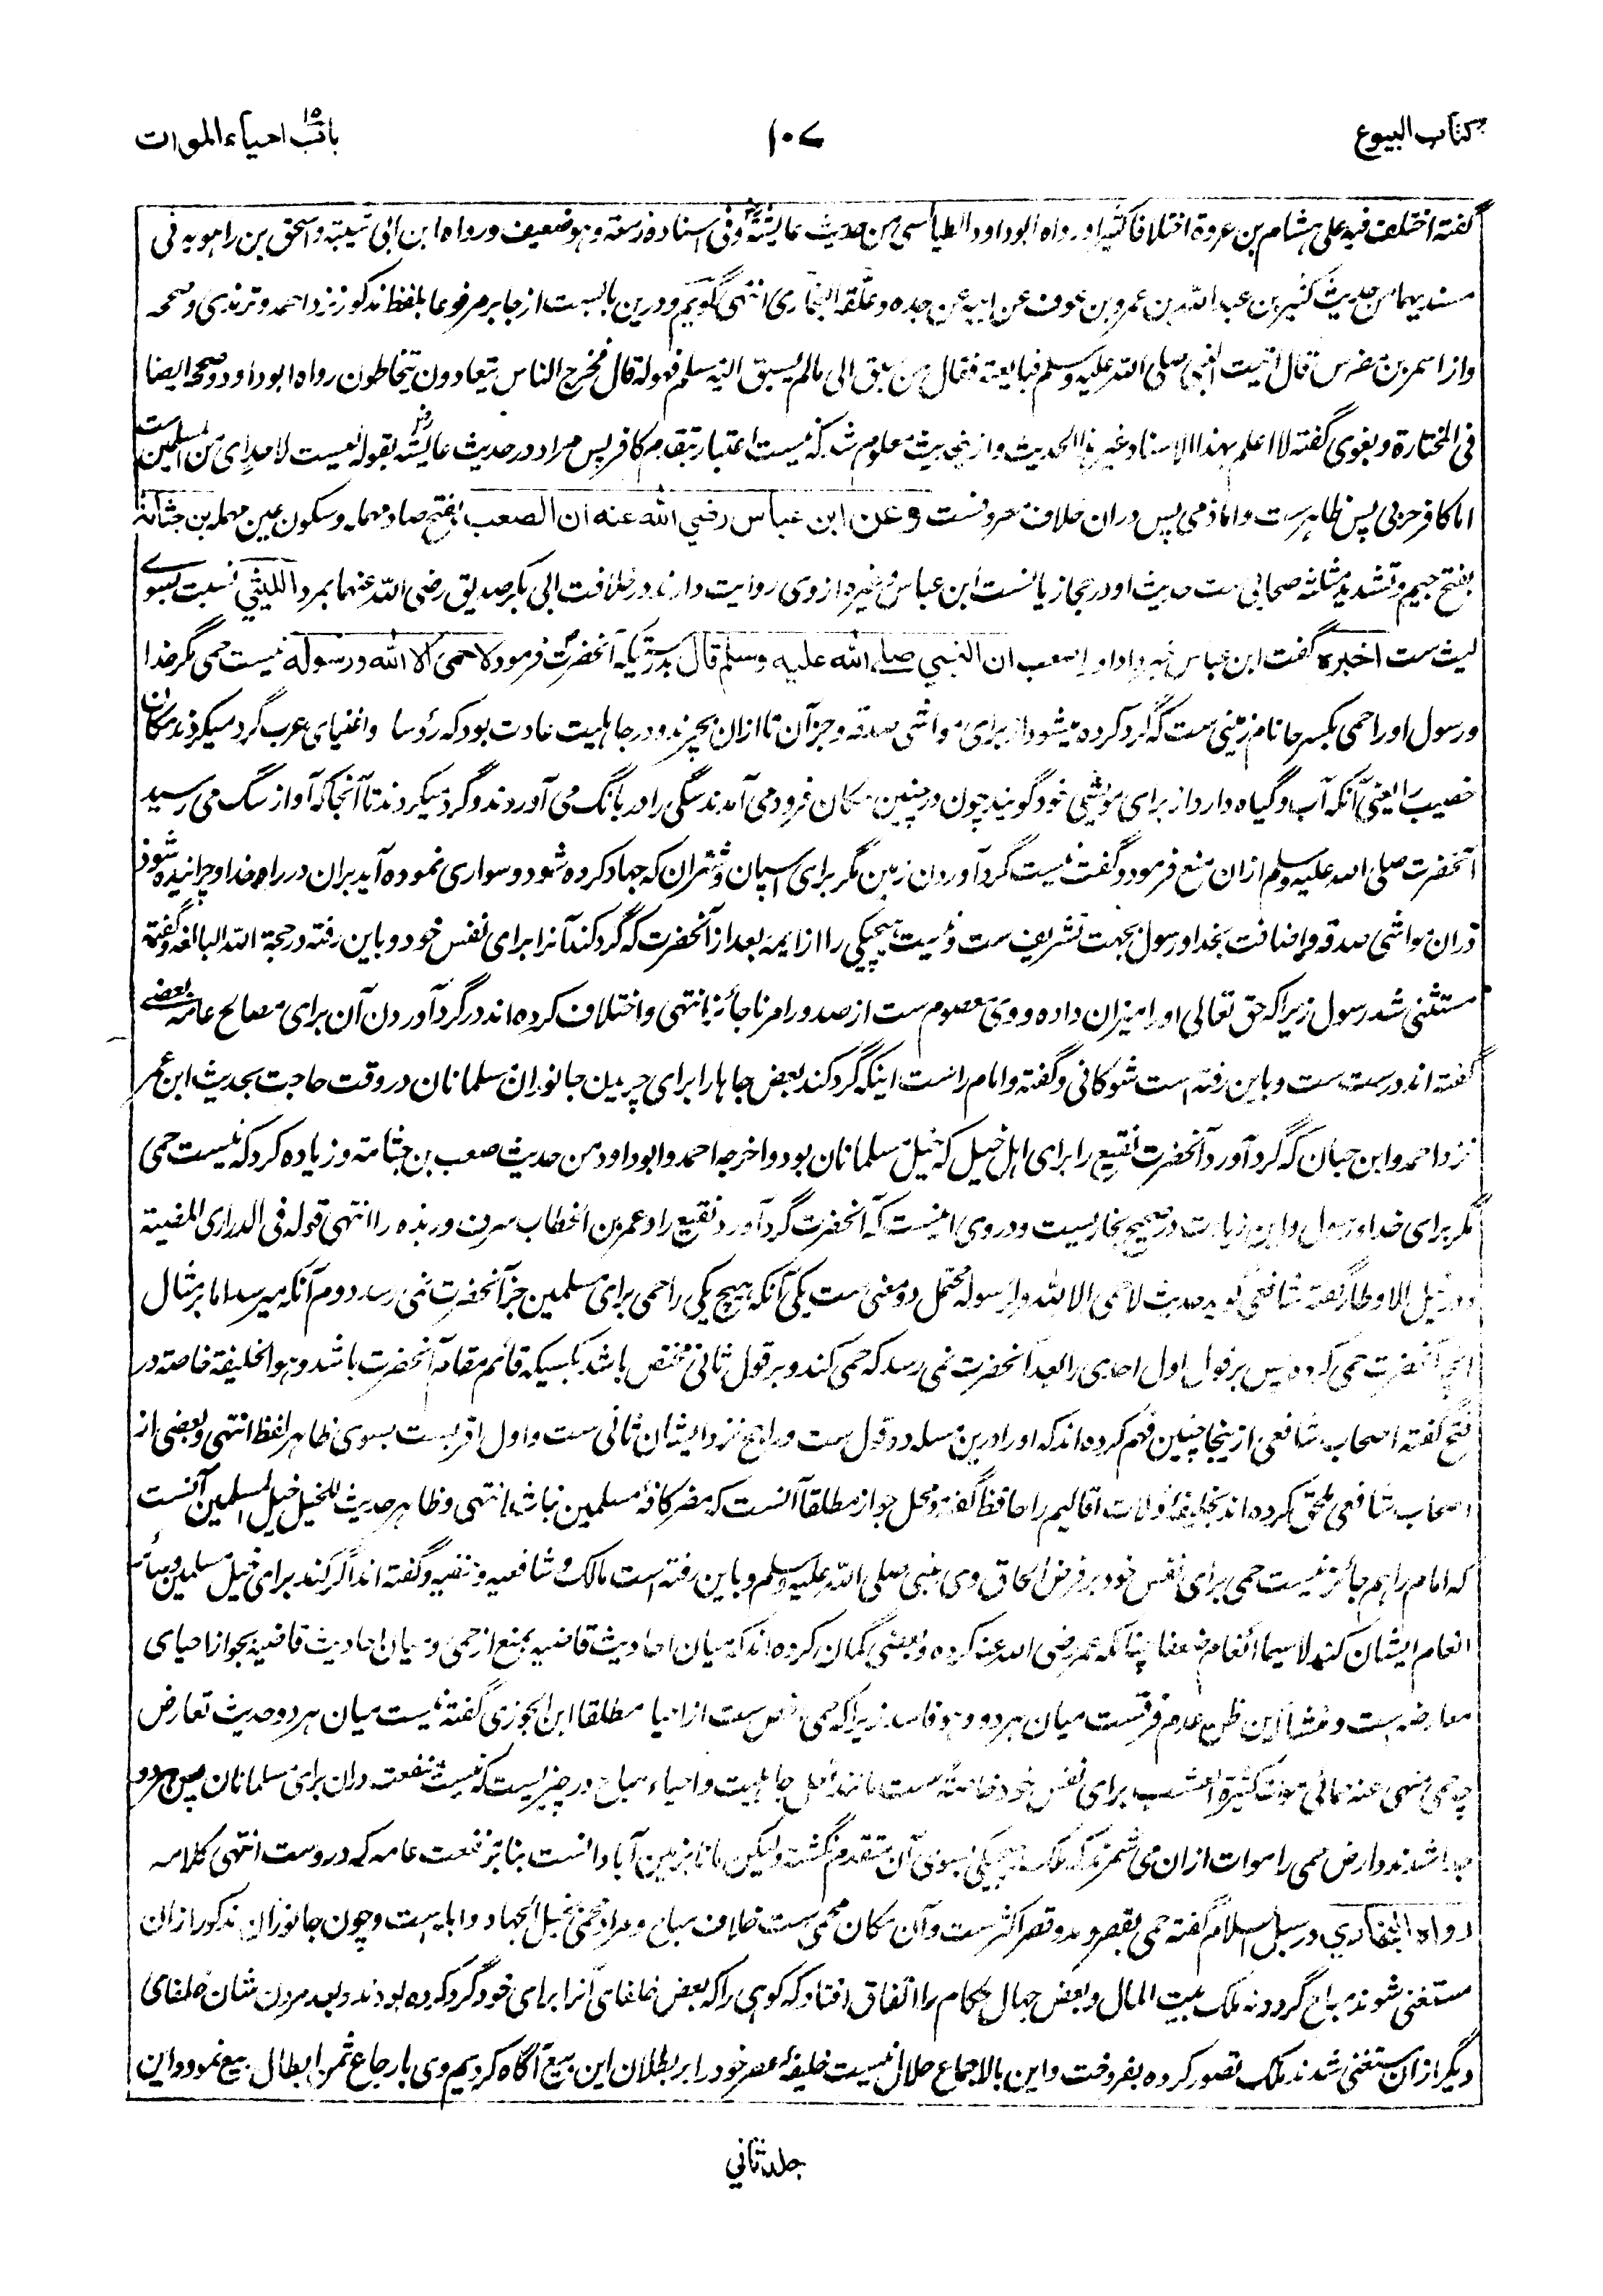 كتاب البيوع
١٠٧
باب ١٥ احياء الموات
گفته اختلف فیه علی هشام بن عروة اختلافا کثیرا ورواه ابوداود الطیالسی من حدیث عایشة وفی اسناده زمعة وهو ضعیف ورواه ابن ابی شیبة واسحق بن راهویه فی
مسندیهما من حدیث کثیر بن عبد الله بن عمرو بن عوف عن ابیه عن جده وعلقه البخاری انتهی گویم ودرین بابست از جابر مرفوعا بلفظ مذکور نزد احمد وترمذی وصححه
واز اسمر بن مضرس قال اتیت النبی صلی الله علیه وسلم فبایعته فقال من سبق الی مالم یسبق الیه مسلم فهو له قال فخرج الناس یتعادون یتخاطون رواه ابوداود وصححه ایضا
فی المختارة وبغوی گفته لا اعلم بهذا الاسناد غیر هذا الحدیث وازینحدیث معلوم شد که نیست اعتبار بتقدم کافر پس مراد در حدیث عایشه بقوله لیست لاحد ای من المسلمین ست
اما کافر حربی پس ظاهرست واما ذمی پس دران خلاف معروفست وعن ابن عباس رضي الله عنه ان الصعب بفتح صاد مهمله وسکون عین مهمله بن جثامة
بفتح جیم وتشدید مثلثه صحابی ست حدیث او در حجازیانست ابن عباس وغیره ازوی روایت دارند در خلافت ابی بکر صدیق رضی الله عنهما بمرد الليثي نسبت بسوے
لیث ست اخبره گفت ابن عباس خبر داد او را صعب ان النبي صلى الله عليه وسلم قال بدرستیکه آنحضرت فرمود لا حمى الا الله ورسوله نیست حمی مگر خدا
ورسول او را حمی بکسر حا نام زمینی ست که گرد کرده میشود از برای مواشی صدقه وجز آن تا ازان بچرند ودر جاهلیت عادت بود که رؤسا واغنیای عرب گرد میکردند مکان
خصیب را یعنی آنکه آب وگیاه دارد از برای مواشی خود گویند چون در چنین مکان فرود می آمدند سگی را در بانگ می آوردند وگرد میکردند تا آنجا که آواز سگ می رسید
آنحضرت صلی الله علیه وسلم ازان منع فرمود وگفت نیست گرد آوردن زمین مگر برای اسپان وشتران که جهاد کرده شود وسواری نموده آید بران در راه خدا وچرانیده شود
دران مواشی صدقه واضافت بخدا ورسول بجهت تشریف ست ونیست هیچیکی را از ایمه بعد از آنحضرت که گرد کند آنرا برای نفس خود وباین رفته در حجة الله البالغه وگفته
مستثنی شد رسول زیرا که حق تعالی او را میزان داده ووی معصوم ست از صدور امر ناجائز انتهی واختلاف کرده اند در گرد آوردن آن برای مصالح عامه بعضے
گفته اند درست ست وباین رفته است شوکانی وگفته وامام راست اینکه گرد کند بعض جاها را برای چریدن جانوران مسلمانان در وقت حاجت بحدیث ابن عمر
نزد احمد وابن حبان که گرد آورد آنحضرت نقیع را برای اهل خیل که خیل مسلمانان بود واخرجه احمد وابوداود من حدیث صعب بن جثامة وزیاده کرد که نیست حمی
مگر برای خدا ورسول واین زیادت در صحیح بخاریست ودروی اینست که آنحضرت گرد آورد نقیع را وعمر بن الخطاب سرف وربذه را انتهی قوله فی الدراری المضیئة
ودر نیل الاوطار گفته شافعی گوید حدیث لا حمی الا لله ولرسوله محتمل دو معنی ست یکی آنکه هیچ یکی را حمی برای مسلمین جز آنحضرت نمی رسد دوم آنکه میرسد اما بر مثال
آنچه آنحضرت حمی کرده پس بر قول اول احدی را بعد آنحضرت نمی رسد که حمی کند وبر قول ثانی مختص باشد بکسیکه قائم مقام آنحضرت باشد وهو الخلیفة خاصة در
فتح گفته اصحاب شافعی ازینجا چنین فهم کرده اند که او را درین مسله دو قول ست وراجح نزد ایشان ثانی ست واول اقربست بسوی ظاهر لفظ انتهی وبعضی از
اصحاب شافعی ملحق کرده اند بخلیفه ولات اقالیم را حافظ گفته ومحل جواز مطلقا آنست که مضر کافه مسلمین نباشد انتهی وظاهر حدیث للخیل خیل المسلمین آنست
که امام را هم جائز نیست حمی برای نفس خود بر فرض الحاق وی بنبی صلی الله علیه وسلم وباین رفته است مالک وشافعیه وحنفیه وگفته اند اگر کند برای خیل مسلمین وسائر
انعام ایشان کند لا سیما انعام ضعفا چنانکه عمر رضی الله عنه کرده وبعضی گمان کرده اند که میان احادیث قاضیه بمنع از حمی ومیان احادیث قاضیه بجواز احیای
معارضه است ومنشا این ظن عدم فرقست میان هر دو وهو فاسد زیرا که حمی اخص ست از احیا مطلقا ابن الجوزی گفته نیست میان هر دو حدیث تعارض
چه حمی منهی عنه حمائی موات کثیرة العشب برای نفس خود خاصةً ست مانند فعل جاهلیت واحیاء مباح در چیزیست که نیست منفعت دران برای مسلمانان پس هر دو
جدا شدند وارض حمی را موات ازان می شمرند که ملک هیچیکی بسوی آن متقدم نگشته ولیکن مانا بزمین آبادانست بنابر منفعت عامه که دروست انتهی کلامه
رواه البخاري در سبل السلام گفته حمی بقصر ومد وقصر اکثرست وآن مکان محمی ست خلاف مباح ومراد بحمی خیل الجهاد وابل ست وچون جانوران مذکور ازان
مستغنی شوند مباح گردد نه ملک بیت المال وبعض جهال حکام را اتفاق افتاد که کوهی را که بعض خلفای آنرا برای خود گرد کرده بودند وبعد مردن شان خلفای
دیگر ازان مستغنی شدند ملک تصور کرده بفروخت واین بالاجماع حلال نیست خلیفه عصر خود را بر بطلان این بیع آگاه کردیم وی بارجاع ثمن وابطال بیع نمود واین
جلد ثاني